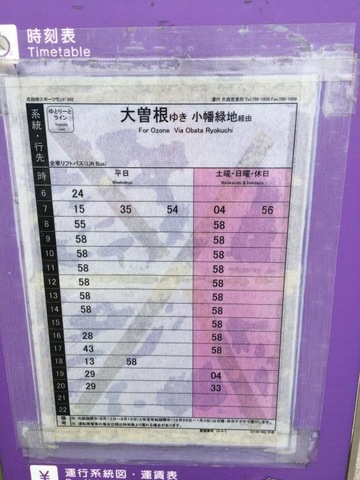 時刻表
Timetable
志段味スポーツランド
ゆとりーとライン
大曽根ゆき 小幡緑地経由
For Ozone Via Obata Ryokuchi
系統・行先
全車リフトバス(Lift Bus)
時 平日 土曜・日曜・休日
Weekdays Weekends & holidays
6 24
7 15 35 54 04 56
8 55 58
9 58 58
10 58 58
11 58 58
12 58 58
13 58 58
14 58 58
15 58
16 28 58
17 43 58
18 13 58 58
19 29 04
20 29 33
21
22
備考
運行系統図・運賃表